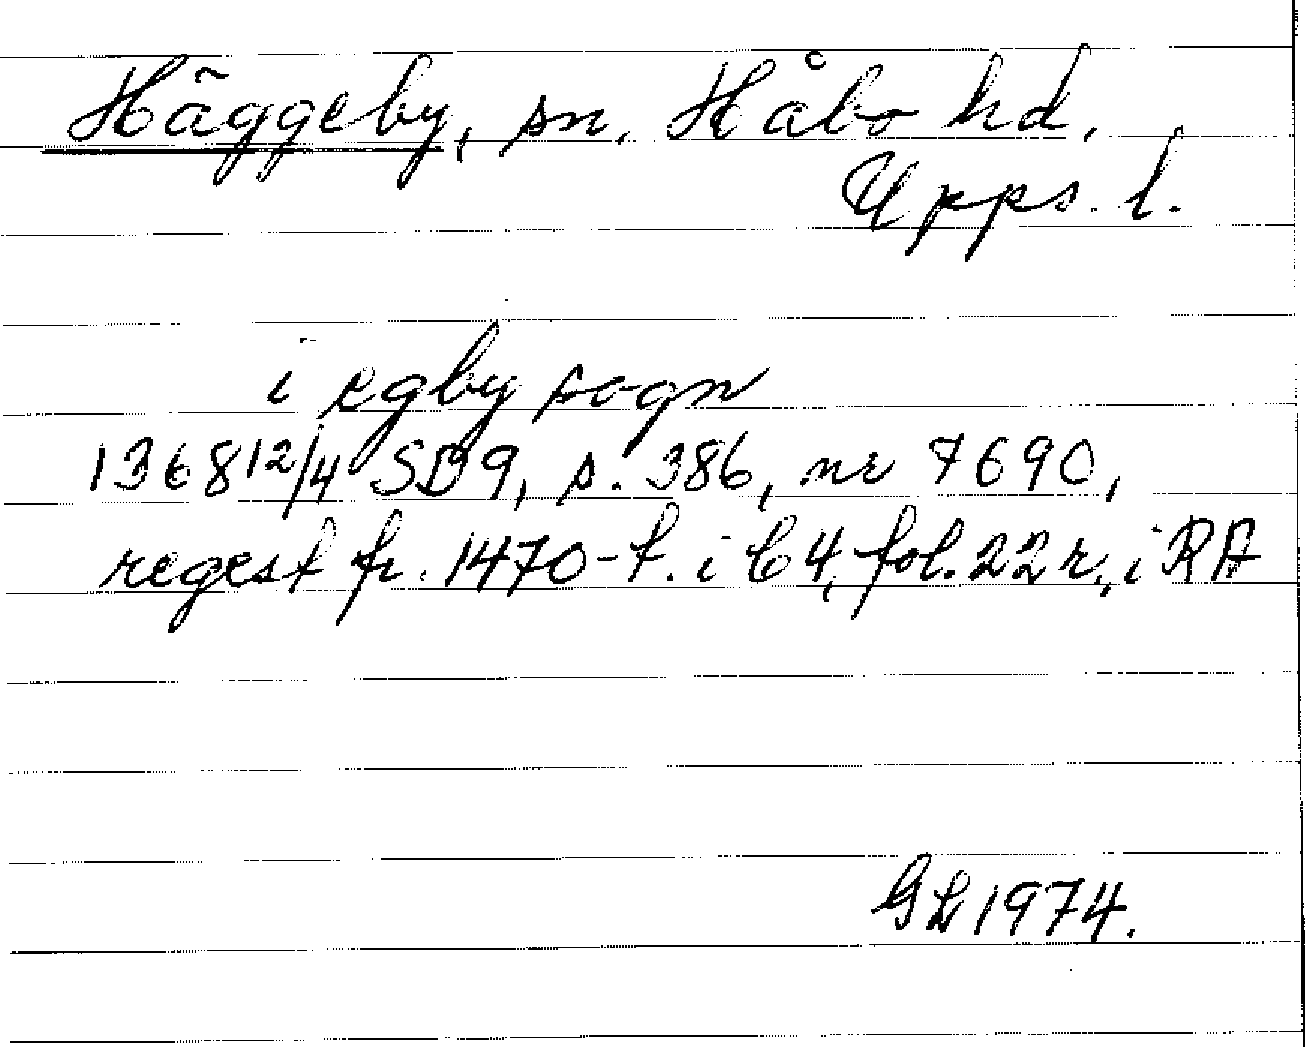 Häggeby, sn. Håbo hd.
Upps. l.
i egby sogn
1368 12/4 SD9, s. 386, nr 7690,
regest fr. 1470-t. i C4, fol. 22r, i RA
GL 1974.